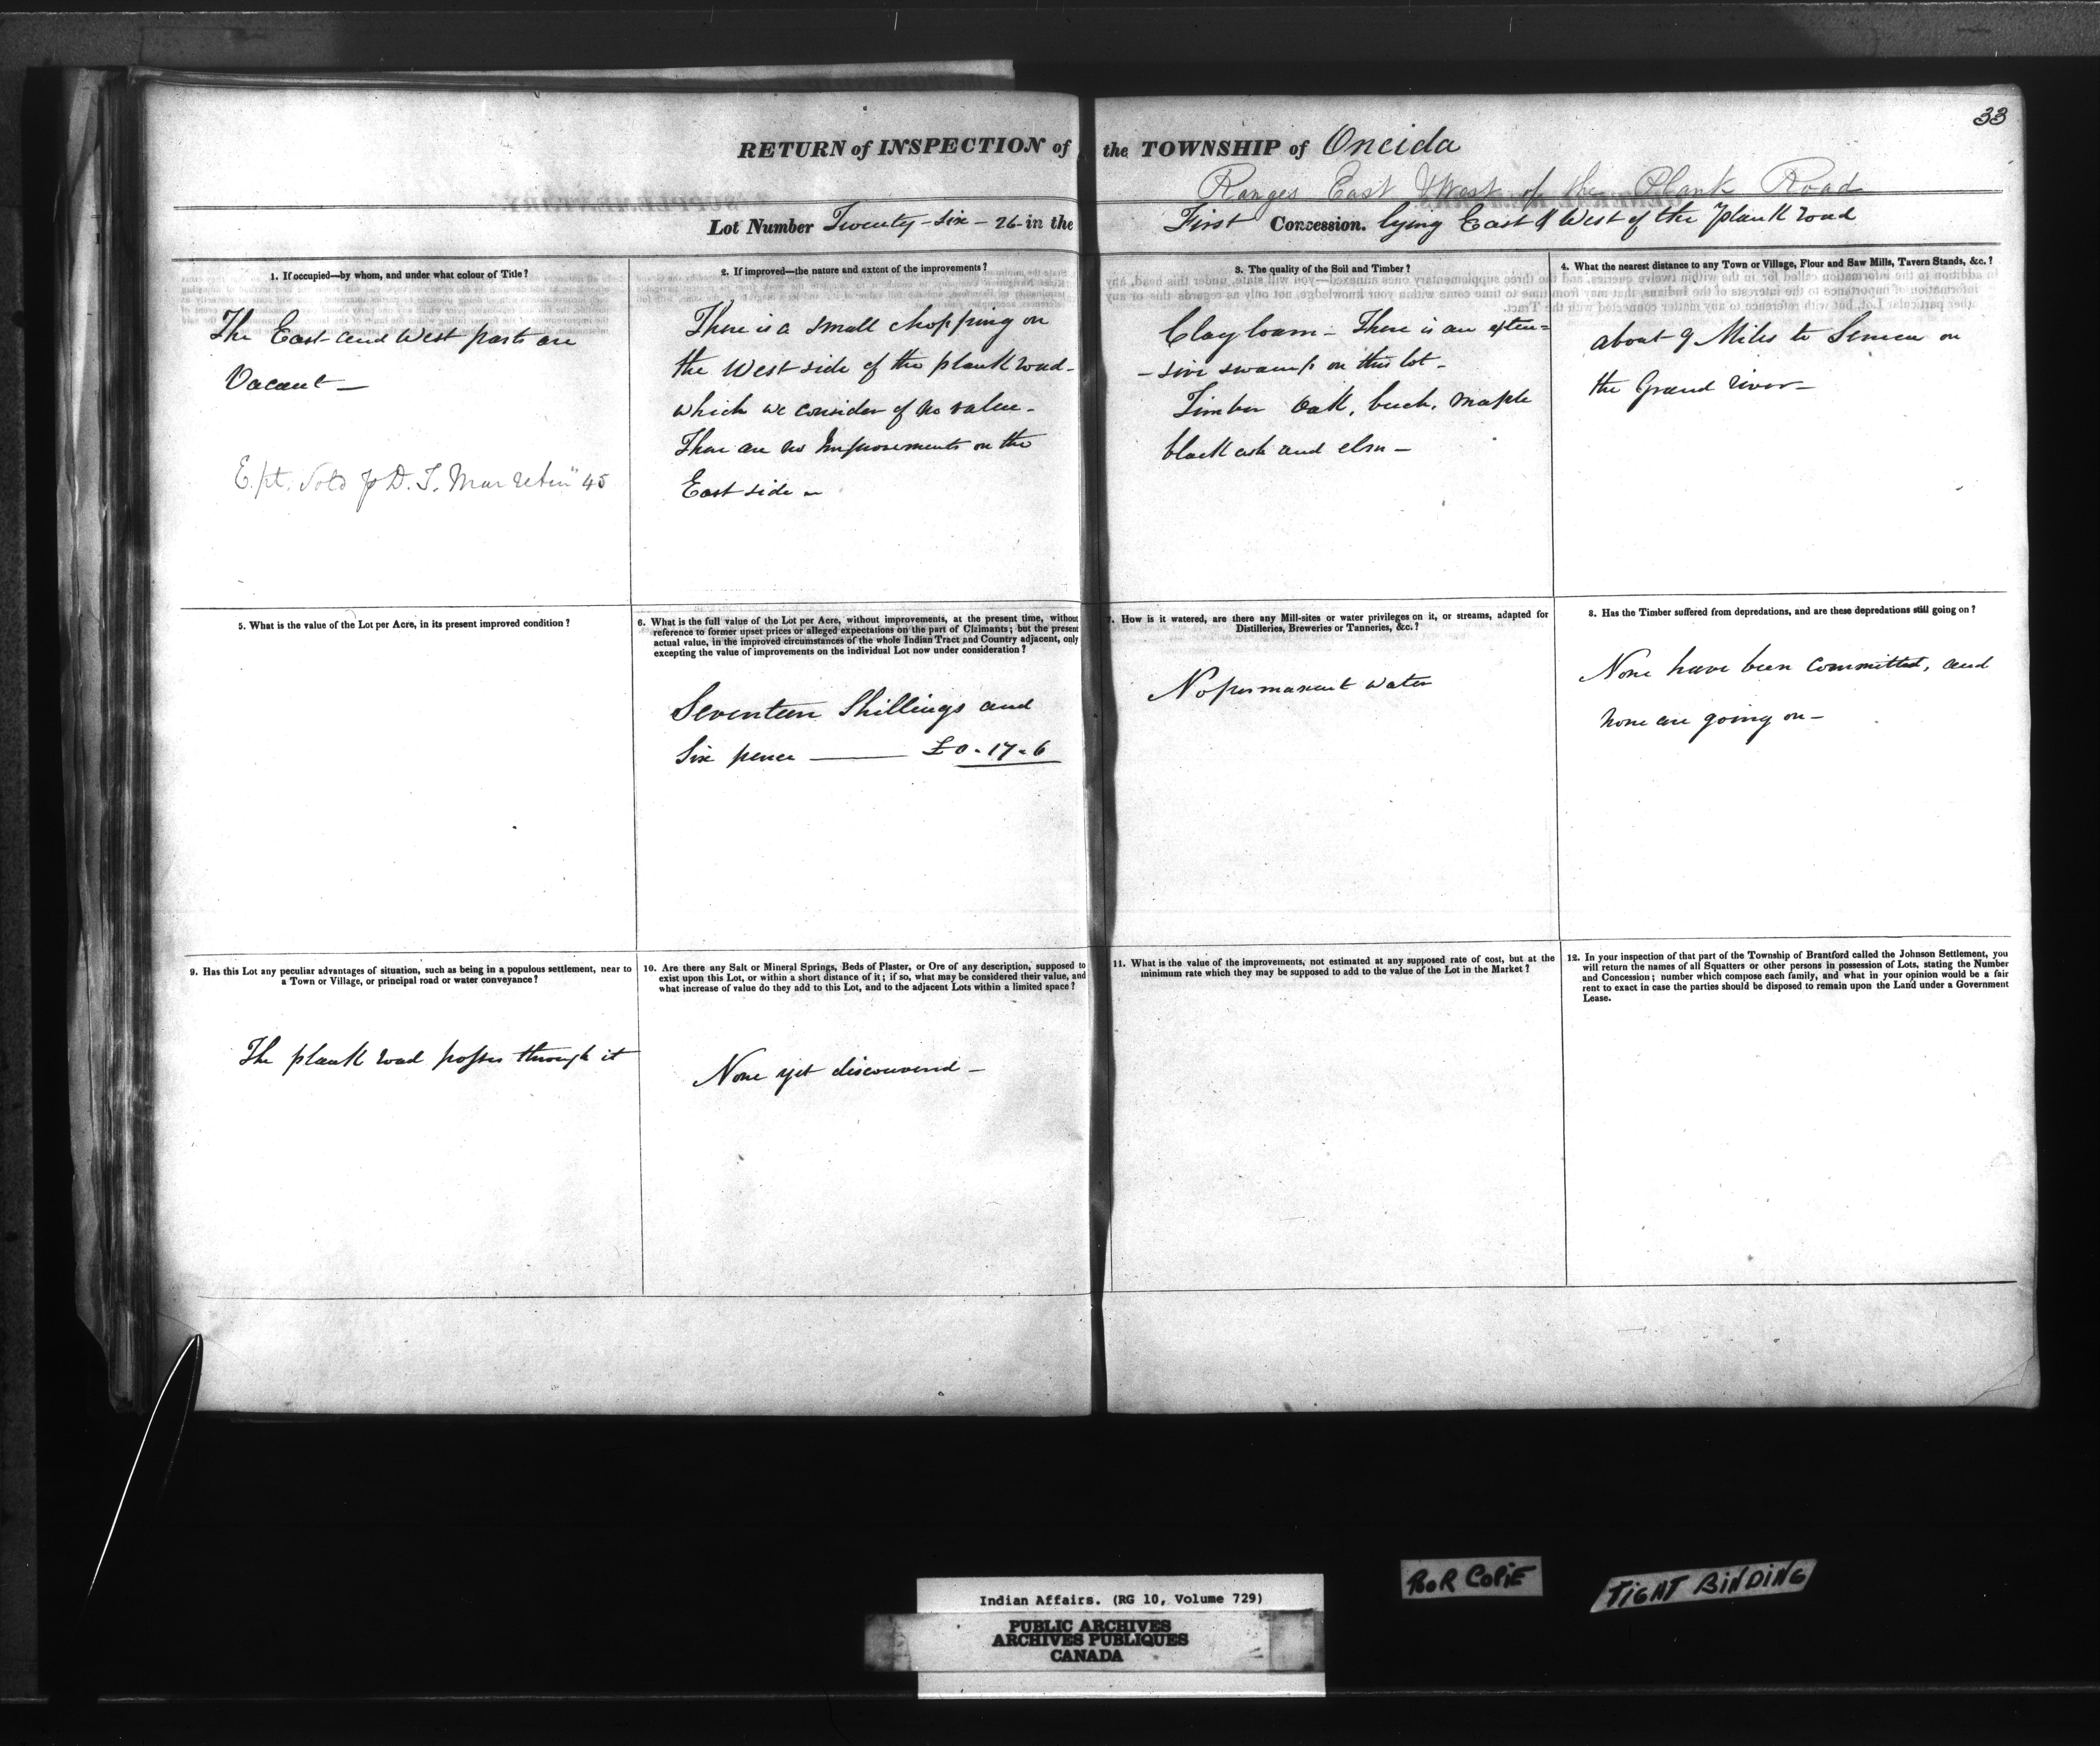 33
RETURN of INSPECTION of the TOWNSHIP of Oneida
Ranges East & West of the Plank Road
Lot Number Twenty-six - 26 - in the First Concession. lying East & West of the plank road
1. If occupied—by whom, and under what colour of Title?
The East and West parts are
Vacant —
E. pt. Sold p D. T.
45
2. If improved—the nature and extent of the improvements?
There is a small chopping on
the West side of the plank road -
which we consider of no value -
There are no Improvements on the
East side -
3. The quality of the Soil and Timber?
Clay loam - There is an exten=
- sive swamp on this lot -
Timber Oak, beech, Maple
black ash and elm -
4. What the nearest distance to any Town or Village, Flour and Saw Mills, Tavern Stands, &c.?
about 9 Miles to Seneca on
the Grand river -
5. What is the value of the Lot per Acre, in its present improved condition?
6. What is the full value of the Lot per Acre, without improvements, at the present time, without
reference to former upset prices or alleged expectations on the part of Claimants; but the present
actual value, in the improved circumstances of the whole Indian Tract and Country adjacent, only
excepting the value of improvements on the individual Lot now under consideration?
Seventeen Shillings and
Six pence —— £0-17-6
7. How is it watered, are there any Mill-sites or water privileges on it, or streams, adapted for
Distilleries, Breweries or Tanneries, &c.?
No permanent water
8. Has the Timber suffered from depredations, and are these depredations still going on?
None have been committed, and
none are going on -
9. Has this Lot any peculiar advantages of situation, such as being in a populous settlement, near to
a Town or Village, or principal road or water conveyance?
The plank road passes through it
10. Are there any Salt or Mineral Springs, Beds of Plaster, or Ore of any description, supposed to
exist upon this Lot, or within a short distance of it; if so, what may be considered their value, and
what increase of value do they add to this Lot, and to the adjacent Lots within a limited space?
None yet discovered -
11. What is the value of the improvements, not estimated at any supposed rate of cost, but at the
minimum rate which they may be supposed to add to the value of the Lot in the Market?
12. In your inspection of that part of the Township of Brantford called the Johnson Settlement, you
will return the names of all Squatters or other persons in possession of Lots, stating the Number
and Concession; number which compose each family, and what in your opinion would be a fair
rent to exact in case the parties should be disposed to remain upon the Land under a Government
Lease.
POOR COPIE
TIGHT BINDING
Indian Affairs. (RG 10, Volume 729)
PUBLIC ARCHIVES
ARCHIVES PUBLIQUES
CANADA